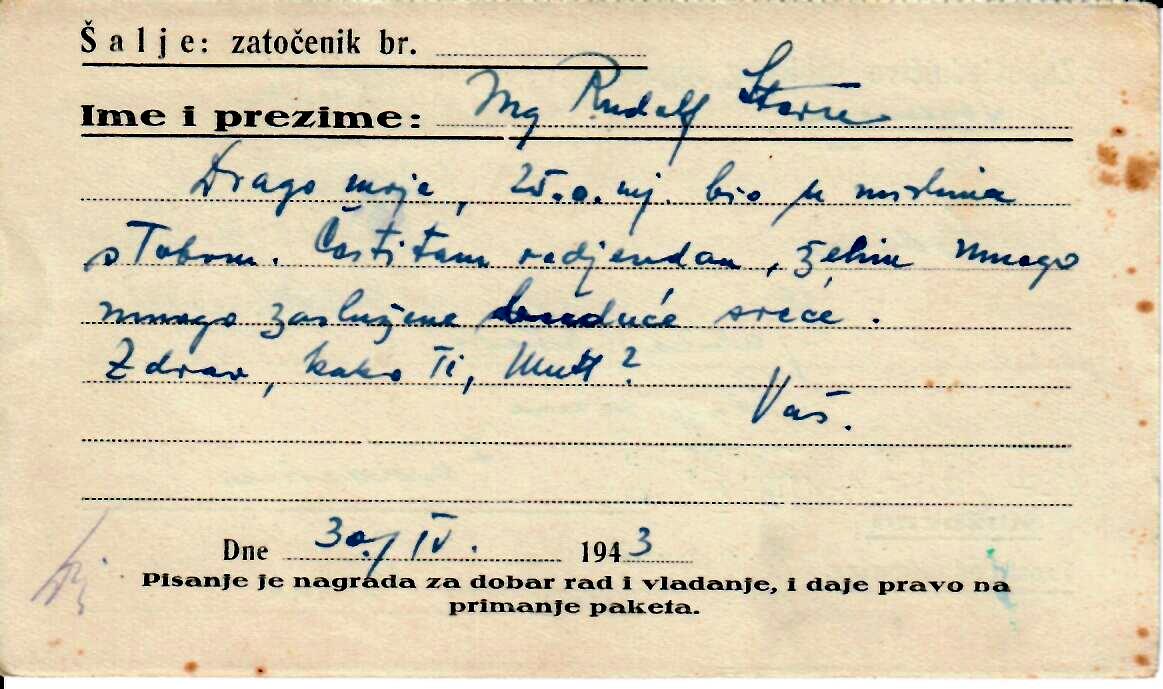 Šalje: zatočenik br.
Ime i prezime: Ing Rudolf
Drago moje, 25.o.mj. bio u mislima
s Tobom. Čestitam rodjendan, želim mnogo
mnogo zaslužene buduće sreće.
Zdrav, kako Ti, Mutt?
Vaš.
Dne 30./IV. 1943
Pisanje je nagrada za dobar rad i vladanje, i daje pravo na
primanje paketa.